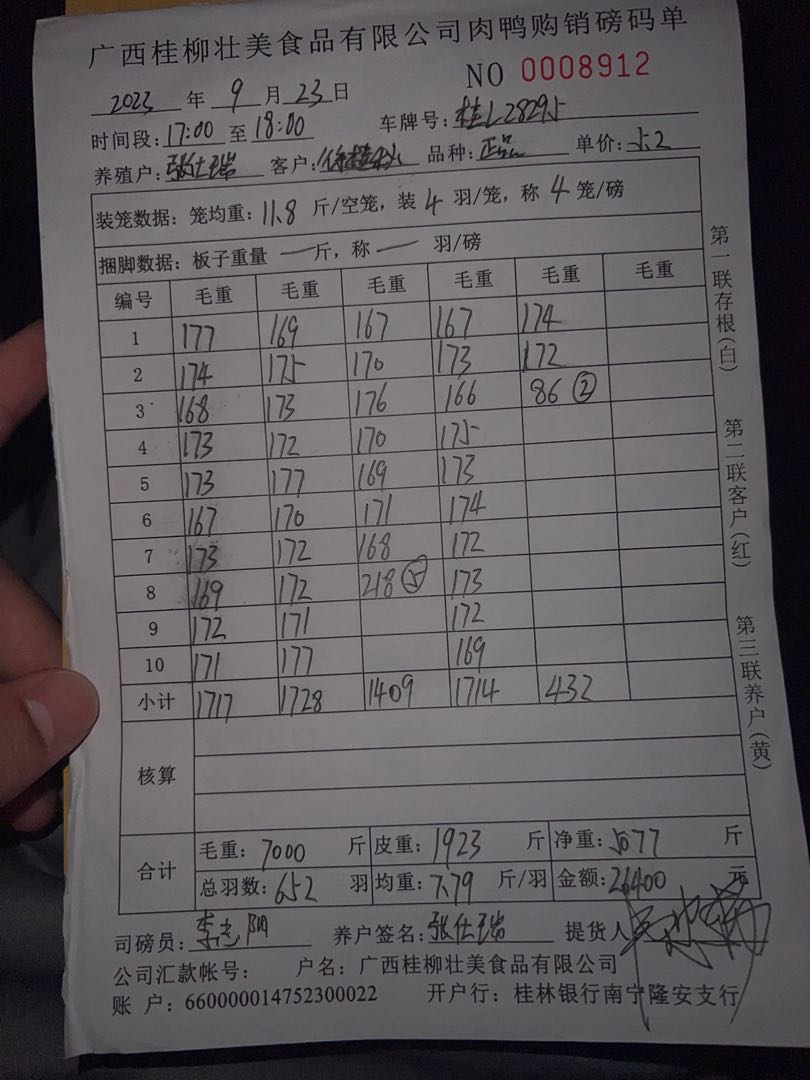 广西桂柳壮美食品有限公司肉鸭购销磅码单
NO 0008912
2023 年 9 月 23 日
时间段: 17:00 至 18:00 车牌号: 桂L28295
养殖户: 张仕瑞 客户: 品种: 正品 单价: 5.2
装笼数据: 笼均重: 11.8 斤/空笼, 装 4 羽/笼, 称 4 笼/磅
捆脚数据: 板子重量 — 斤, 称 — 羽/磅
编号 毛重 毛重 毛重 毛重 毛重 毛重
1 177 169 167 167 174
2 174 175 170 173 172
3 168 173 176 166 86 ②
4 173 172 170 175
5 173 177 169 173
6 167 170 171 174
7 173 172 168 172
8 169 172 218 ⑤ 173
9 172 171 172
10 171 177 169
小计 1717 1728 1409 1714 432
核算
合计
毛重: 7000 斤 皮重: 1923 斤 净重: 5077 斤
总羽数: 652 羽 均重: 7.79 斤/羽 金额: 26400 元
司磅员: 李志阴 养户签名: 张仕瑞 提货人
公司汇款帐号: 户名: 广西桂柳壮美食品有限公司
账 户: 660000014752300022 开户行: 桂林银行南宁隆安支行
第一联存根(白)
第二联客户(红)
第三联养户(黄)